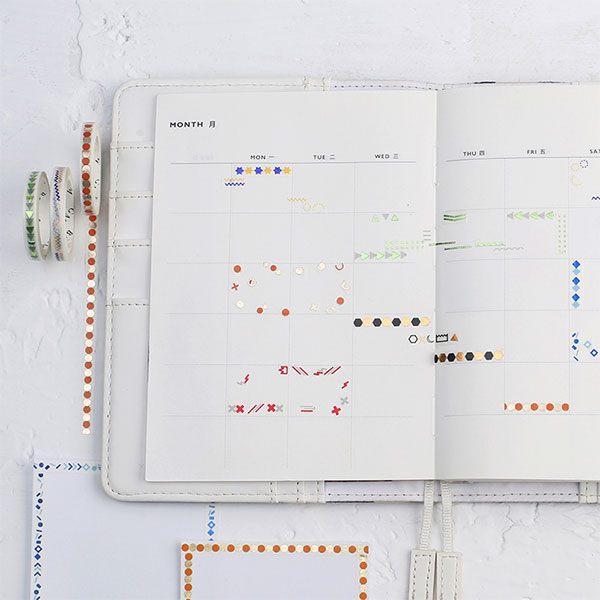 MONTH 月
MON 一 TUE 二 WED 三 THU 四 FRI 五 SAT